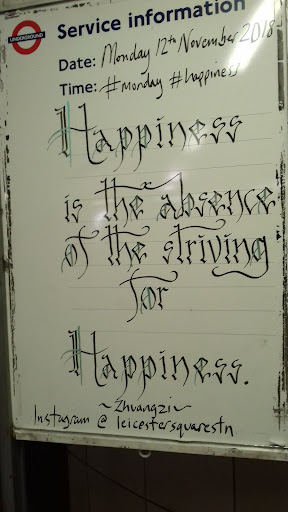 UNDERGROUND
Service information
Date: Monday 12th November 2018
Time: #monday #happiness
Happiness
is the absence
of the striving
for
Happiness.
~Zhuangzi~
Instagram @ leicestersquarestn